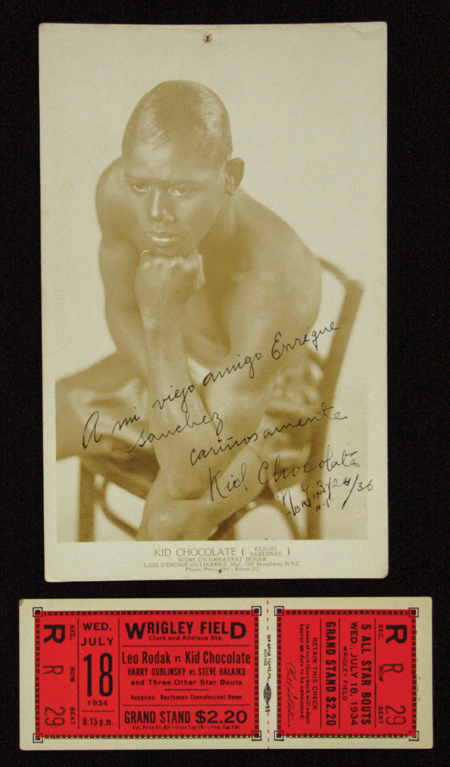 A mi viejo amigo Enrique
Sanchez
cariñosamente
Kid Chocolate
KID CHOCOLATE ( ELIGIO SARDINAS )
WORLD'S GREATEST BOXER
LUIS (PINCHO) GUTIERREZ, Mgr.
Broadway N.Y.C.
WRIGLEY FIELD
Clark and Addison Sts.
SEC. ROW SEAT
R R 29
WED.
JULY
18
1934
8:15 p.m.
Leo Rodak vs Kid Chocolate
HARRY DUBLINSKY vs STEVE HALAIKO
and Three Other Star Bouts
Auspices: Convalescent Home
GRAND STAND $2.20
5 ALL STAR BOUTS
WED., JULY 18, 1934
WRIGLEY FIELD
GRAND STAND $2.20
RETAIN THIS CHECK
SEC. ROW SEAT
R R 29